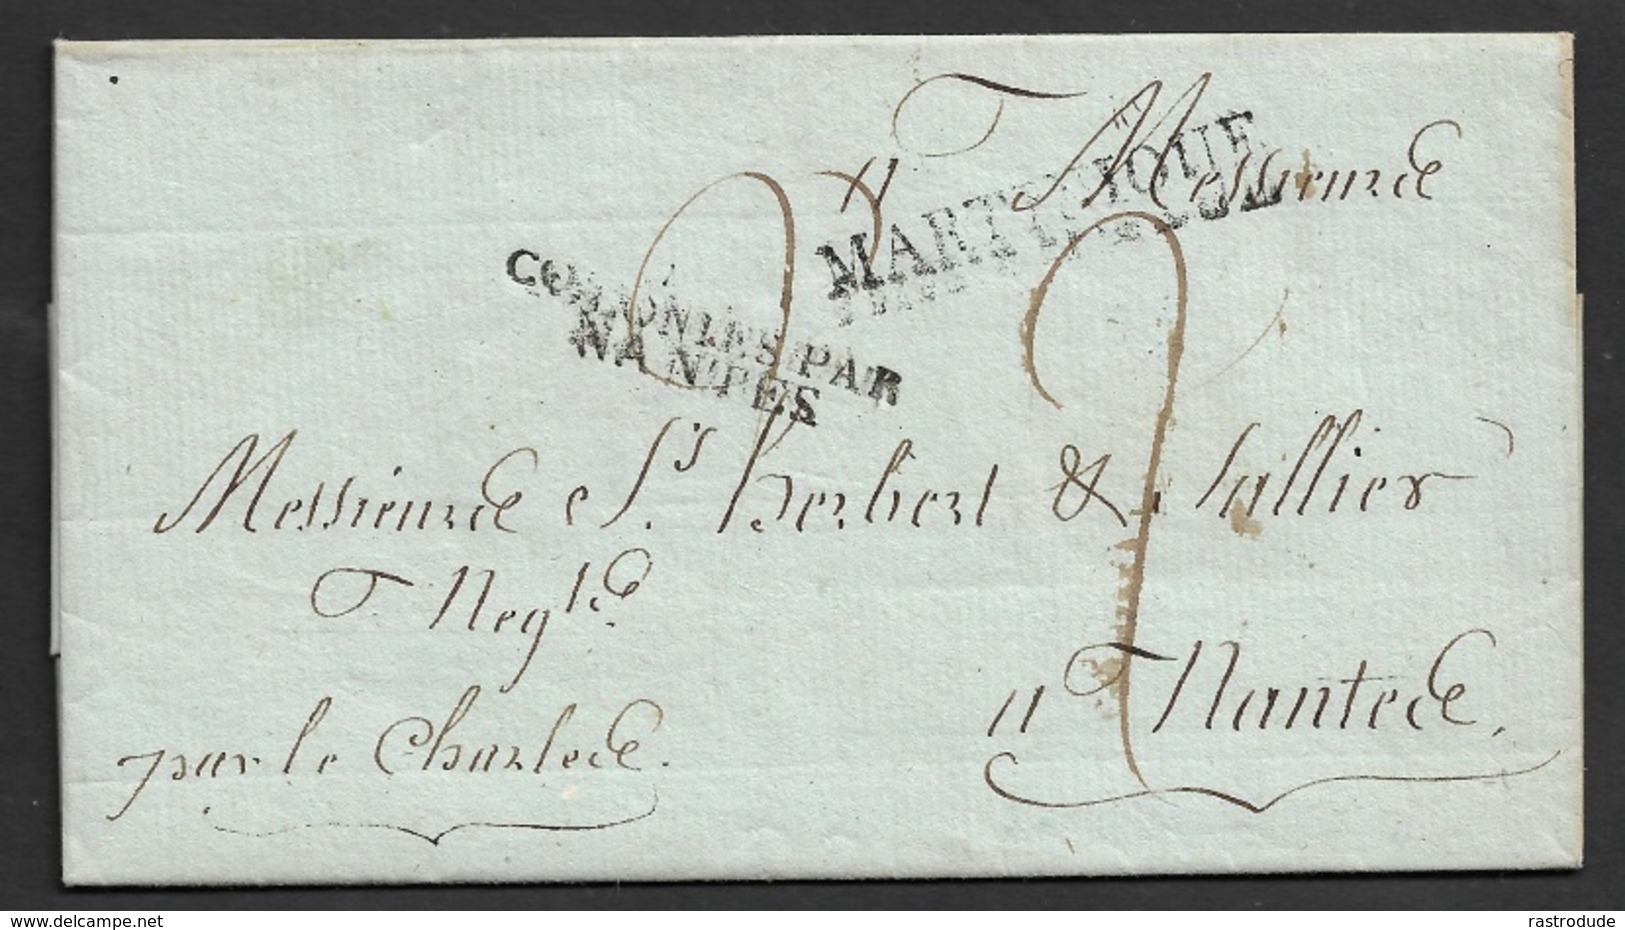 a Messieurs
MARTINIQUE
COLONIES PAR
NANTES
Messieurs St. herbert & Sallier
Negts.
par le Charles.
a Nantes.
www.delcampe.net
rastrodude